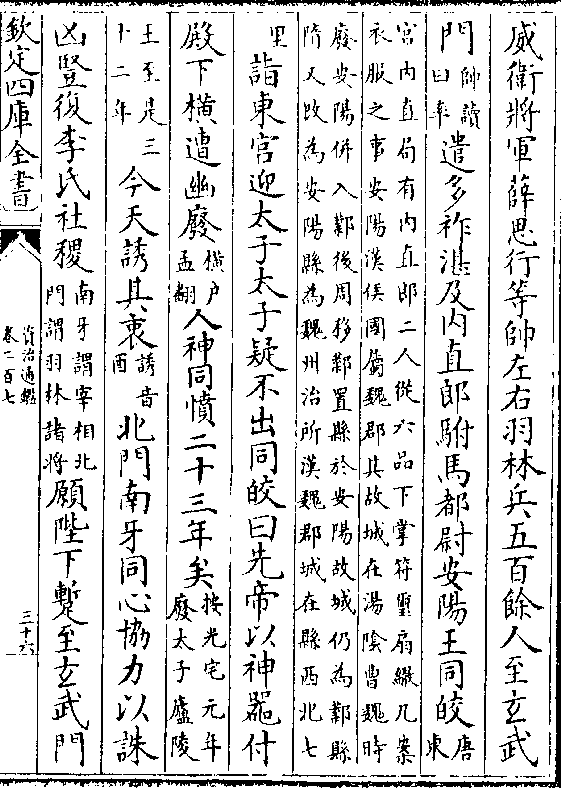 威衛將軍薛思行等帥左右羽林兵五百餘人至玄武
門帥讀曰率遣多祚湛及内直郎駙馬都尉安陽王同皎唐東
宫内直局有内直郎二人從六品下掌符璽扇繖几案
衣服之事安陽漢侯國屬魏郡其故城在湯隂曹魏時
廢安陽併入鄴後周移鄴置縣於安陽故城仍為鄴縣
隋又改為安陽縣為魏州治所漢魏郡城在縣西北七
里詣東宫迎太子太子疑不出同皎曰先帝以神器付
殿下横遭幽廢横户孟翻人神同憤二十三年矣按光宅元年廢太子廬陵
王至是三十二年今天誘其衷誘音酉北門南牙同心協力以誅
凶豎復李氏社稷南牙謂宰相北門謂羽林諸將願陛下蹔至玄武門
欽定四庫全書
資治通鑑
卷二百七
三十六